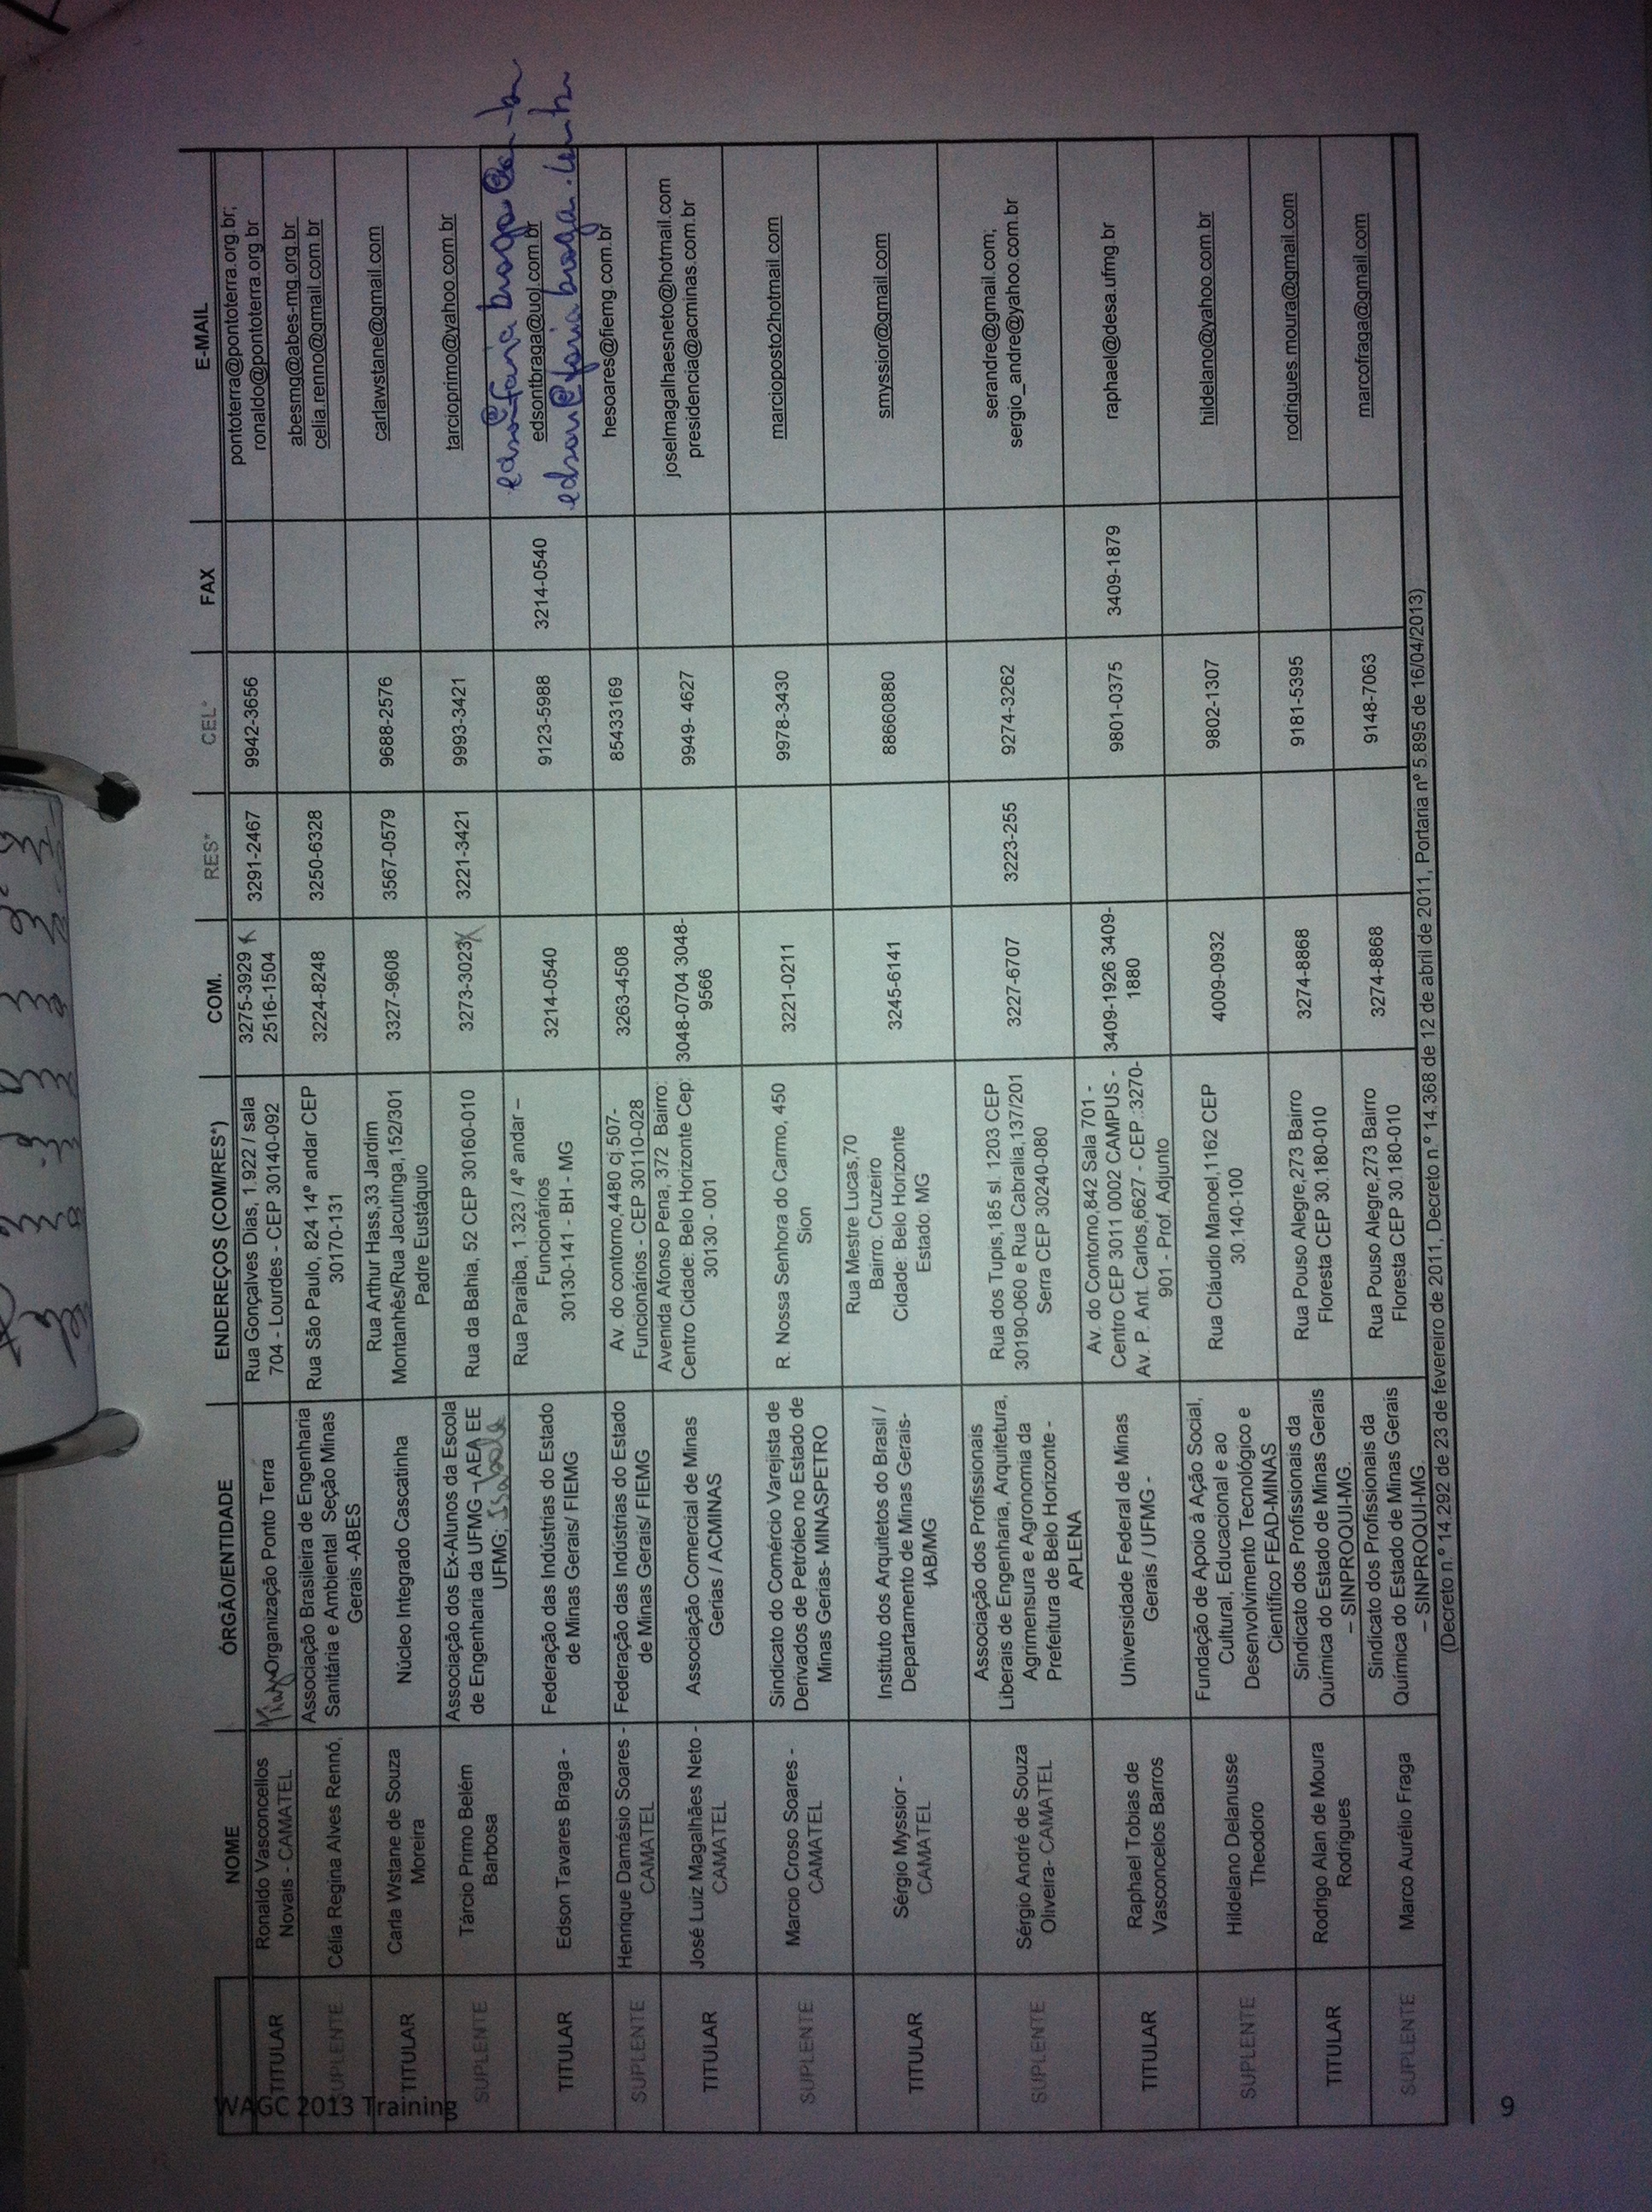 NOME ÓRGÃO/ENTIDADE ENDEREÇOS (COM/RES*) COM. RES* CEL* FAX E-MAIL
TITULAR
Ronaldo Vasconcellos
Novais - CAMATEL
Organização Ponto Terra
Rua Gonçalves Dias, 1.922 / sala
704 - Lourdes - CEP 30140-092
3275-3929
2516-1504
3291-2467
9942-3656
pontoterra@pontoterra.org.br;
ronaldo@pontoterra.org.br
SUPLENTE
Célia Regina Alves Rennó,
Associação Brasileira de Engenharia
Sanitária e Ambiental Seção Minas
Gerais -ABES
Rua São Paulo, 824 14º andar CEP
30170-131
3224-8248
3250-6328
abesmg@abes-mg.org.br
celia.renno@gmail.com.br
TITULAR
Carla Wstane de Souza
Moreira
Núcleo Integrado Cascatinha
Rua Arthur Hass,33 Jardim
Montanhês/Rua Jacutinga,152/301
Padre Eustáquio
3327-9608
3567-0579
9688-2576
carlawstane@gmail.com
SUPLENTE
Tárcio Primo Belém
Barbosa
Associação dos Ex-Alunos da Escola
de Engenharia da UFMG -AEA EE
UFMG; Isabela
Rua da Bahia, 52 CEP 30160-010
3273-3023
3221-3421
9993-3421
tarcioprimo@yahoo.com.br
TITULAR
Edson Tavares Braga -
Federação das Indústrias do Estado
de Minas Gerais/ FIEMG
Rua Paraíba, 1.323 / 4º andar –
Funcionários
30130-141 - BH - MG
3214-0540
9123-5988
3214-0540
edsontbraga@uol.com.br
edson@fariabraga.com.br
SUPLENTE
Henrique Damásio Soares -
CAMATEL
Federação das Indústrias do Estado
de Minas Gerais/ FIEMG
Av. do contorno,4480 cj.507-
Funcionários - CEP 30110-028
3263-4508
85433169
hesoares@fiemg.com.br
TITULAR
José Luiz Magalhães Neto -
CAMATEL
Associação Comercial de Minas
Gerias / ACMINAS
Avenida Afonso Pena, 372 Bairro:
Centro Cidade: Belo Horizonte Cep:
30130 - 001
3048-0704 3048-
9566
9949- 4627
joselmagalhaesneto@hotmail.com
presidencia@acminas.com.br
SUPLENTE
Marcio Croso Soares -
CAMATEL
Sindicato do Comércio Varejista de
Derivados de Petróleo no Estado de
Minas Gerias- MINASPETRO
R. Nossa Senhora do Carmo, 450
Sion
3221-0211
9978-3430
marcioposto2hotmail.com
TITULAR
Sérgio Myssior -
CAMATEL
Instituto dos Arquitetos do Brasil /
Departamento de Minas Gerais-
IAB/MG
Rua Mestre Lucas,70
Bairro: Cruzeiro
Cidade: Belo Horizonte
Estado: MG
3245-6141
88660880
smyssior@gmail.com
SUPLENTE
Sérgio André de Souza
Oliveira- CAMATEL
Associação dos Profissionais
Liberais de Engenharia, Arquitetura,
Agrimensura e Agronomia da
Prefeitura de Belo Horizonte -
APLENA
Rua dos Tupis,185 sl. 1203 CEP
30190-060 e Rua Cabralia,137/201
Serra CEP 30240-080
3227-6707
3223-255
9274-3262
serandre@gmail.com;
sergio_andre@yahoo.com.br
TITULAR
Raphael Tobias de
Vasconcelos Barros
Universidade Federal de Minas
Gerais / UFMG -
Av. do Contorno,842 Sala 701 -
Centro CEP 3011 0002 CAMPUS -
Av. P. Ant. Carlos,6627 - CEP.:3270-
901 - Prof. Adjunto
3409-1926 3409-
1880
9801-0375
3409-1879
raphael@desa.ufmg.br
SUPLENTE
Hildelano Delanusse
Theodoro
Fundação de Apoio à Ação Social,
Cultural, Educacional e ao
Desenvolvimento Tecnológico e
Científico FEAD-MINAS
Rua Cláudio Manoel,1162 CEP
30.140-100
4009-0932
9802-1307
hildelano@yahoo.com.br
TITULAR
Rodrigo Alan de Moura
Rodrigues
Sindicato dos Profissionais da
Química do Estado de Minas Gerais
– SINPROQUI-MG.
Rua Pouso Alegre,273 Bairro
Floresta CEP 30.180-010
3274-8868
9181-5395
rodrigues.moura@gmail.com
SUPLENTE
Marco Aurélio Fraga
Sindicato dos Profissionais da
Química do Estado de Minas Gerais
– SINPROQUI-MG.
Rua Pouso Alegre,273 Bairro
Floresta CEP 30.180-010
3274-8868
9148-7063
marcofraga@gmail.com
(Decreto n.º 14.292 de 23 de fevereiro de 2011, Decreto n.º 14.368 de 12 de abril de 2011, Portaria nº 5.895 de 16/04/2013)
WAGC 2013 Training
9